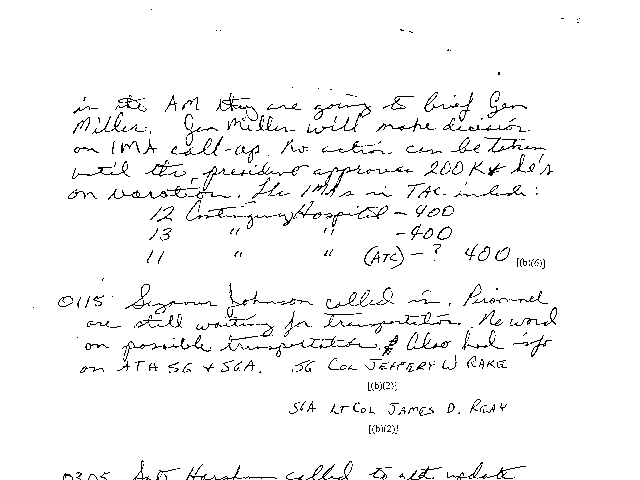 in the AM they are going to brief Gen
Miller. Gen Miller will make decision
on IMA call-up. No action can be taken
until the president approves 200K & he's
on vacation. The IMAs in TAC include:
12 Contingency Hospital - 400
13 " " - 400
11 " " (ATC) - ? 400 [(b)(6)]
0115 Suzanne Johnson called in. Personnel
are still waiting for transportation. No word
on possible transportation. Also had info
on ATH SG & SGA. SG COL JEFFERY W RAKE
[(b)(2)]
SGA LT COL JAMES D. REAY
[(b)(2)]
0305 called to get update